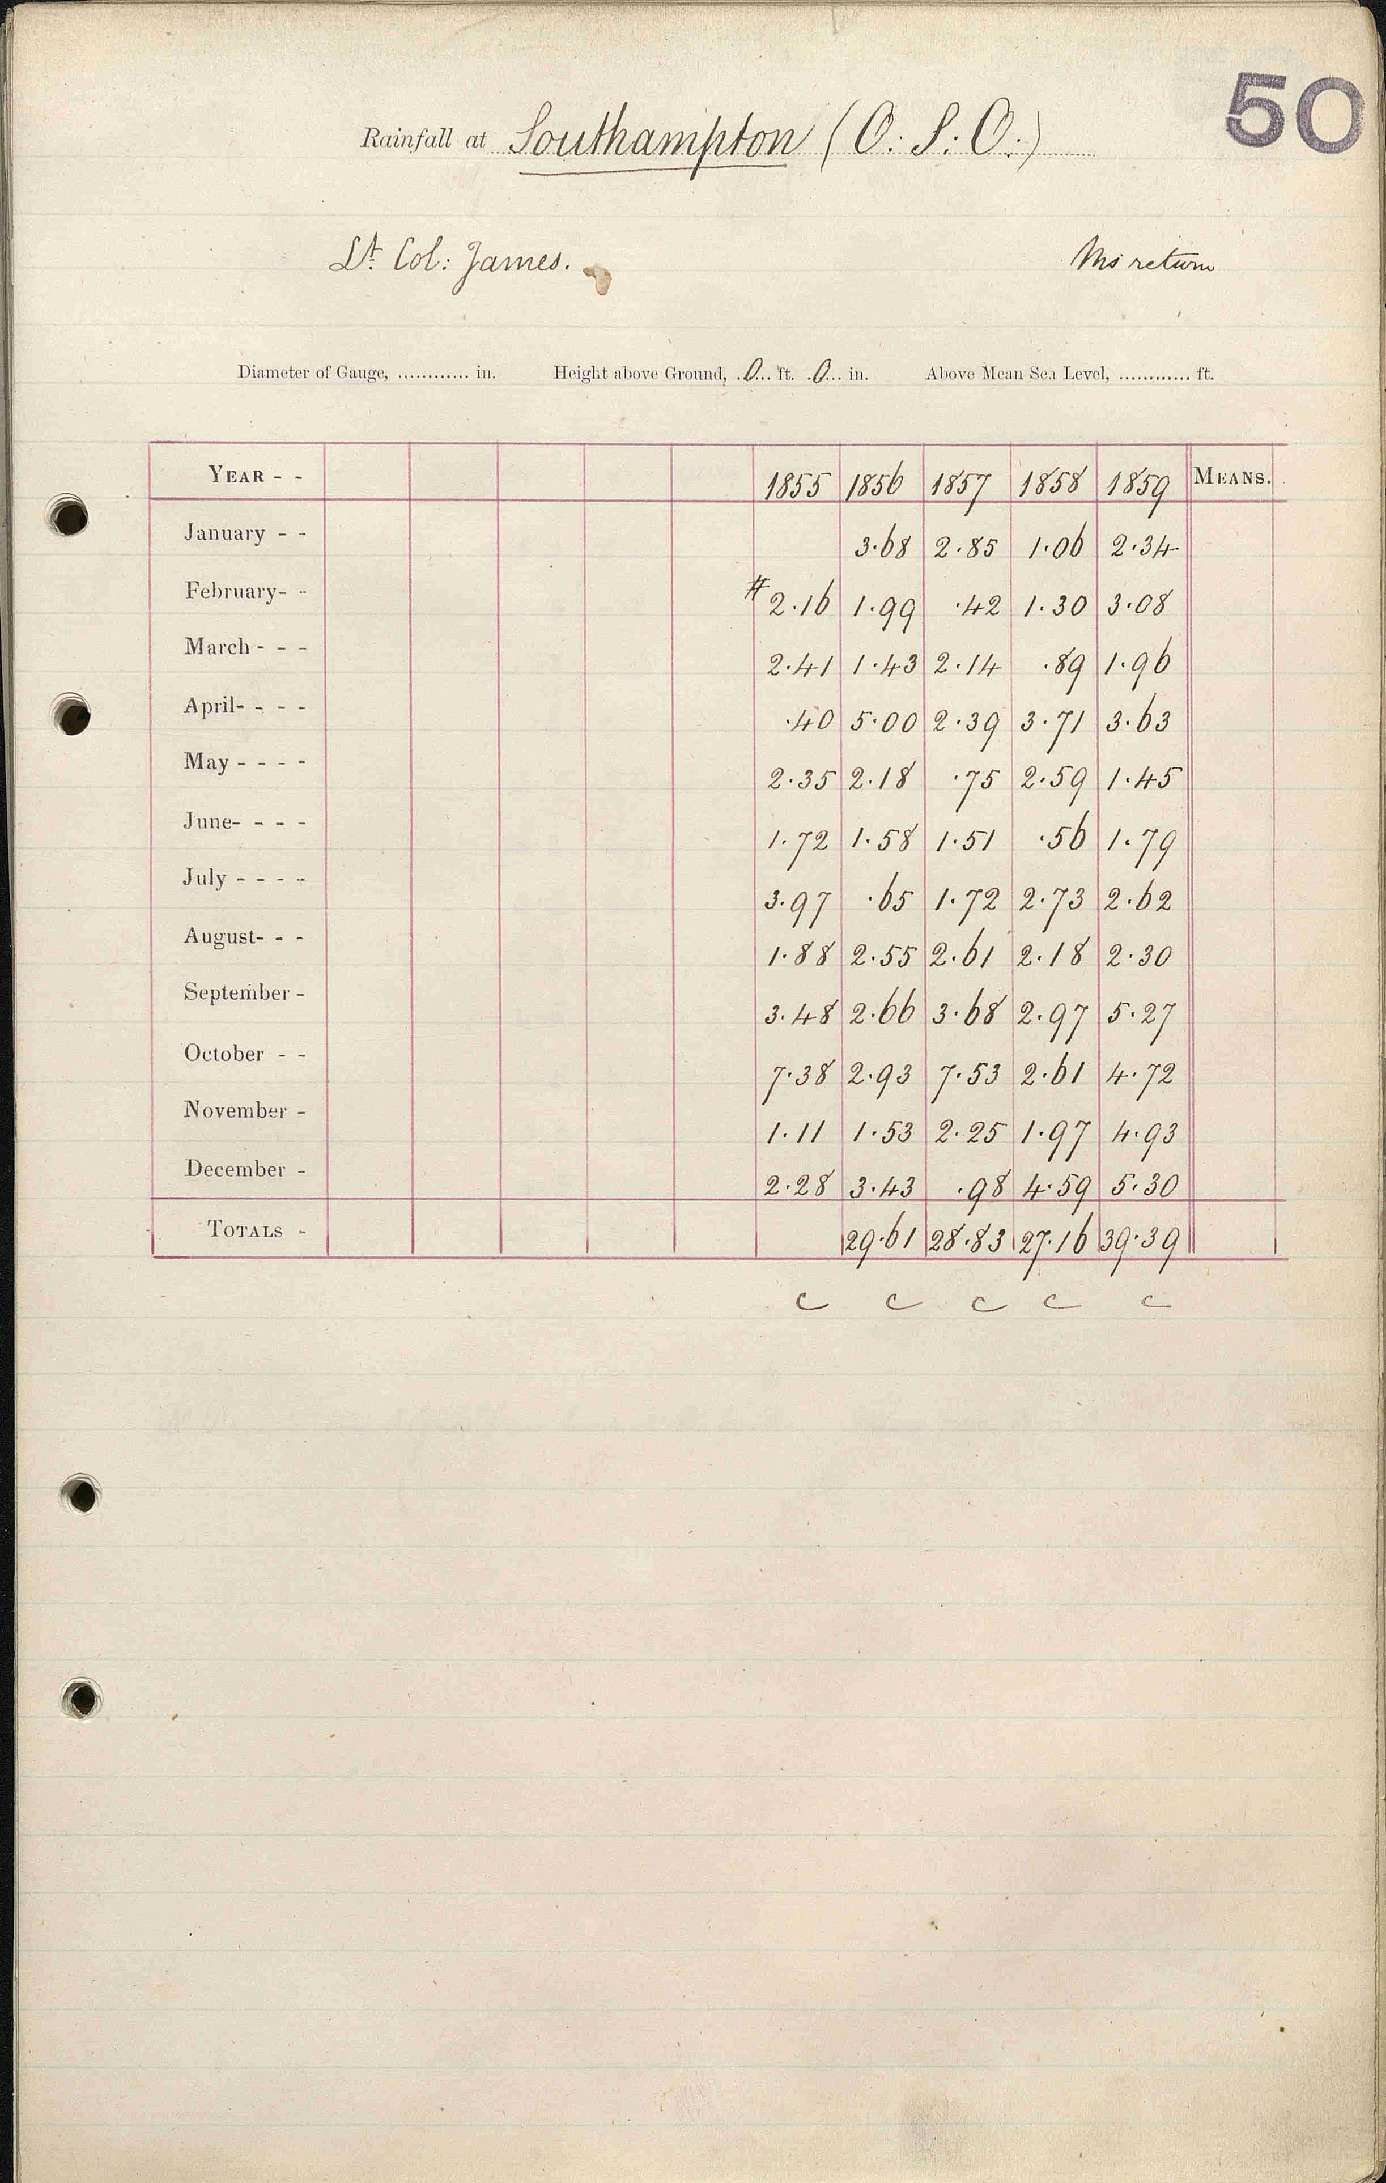 50
Rainfall at Southampton (O: S: O:)
Lt. Col: James. Ms return
Diameter of Gauge, ............ in. Height above Ground, ..0... ft. ..0... in. Above Mean Sea Level, ............ ft.
YEAR - - 1855 1856 1857 1858 1859 MEANS.
January - - 3.68 2.85 1.06 2.34
February- - # 2.16 1.99 .42 1.30 3.08
March - - - 2.41 1.43 2.14 .89 1.96
April- - - - .40 5.00 2.39 3.71 3.63
May - - - - 2.35 2.18 .75 2.59 1.45
June- - - - 1.72 1.58 1.51 .56 1.79
July - - - - 3.97 .65 1.72 2.73 2.62
August- - - 1.88 2.55 2.61 2.18 2.30
September - 3.48 2.66 3.68 2.97 5.27
October - - 7.38 2.93 7.53 2.61 4.72
November - 1.11 1.53 2.25 1.97 4.93
December - 2.28 3.43 .98 4.59 5.30
TOTALS - 29.61 28.83 27.16 39.39
c c c c c